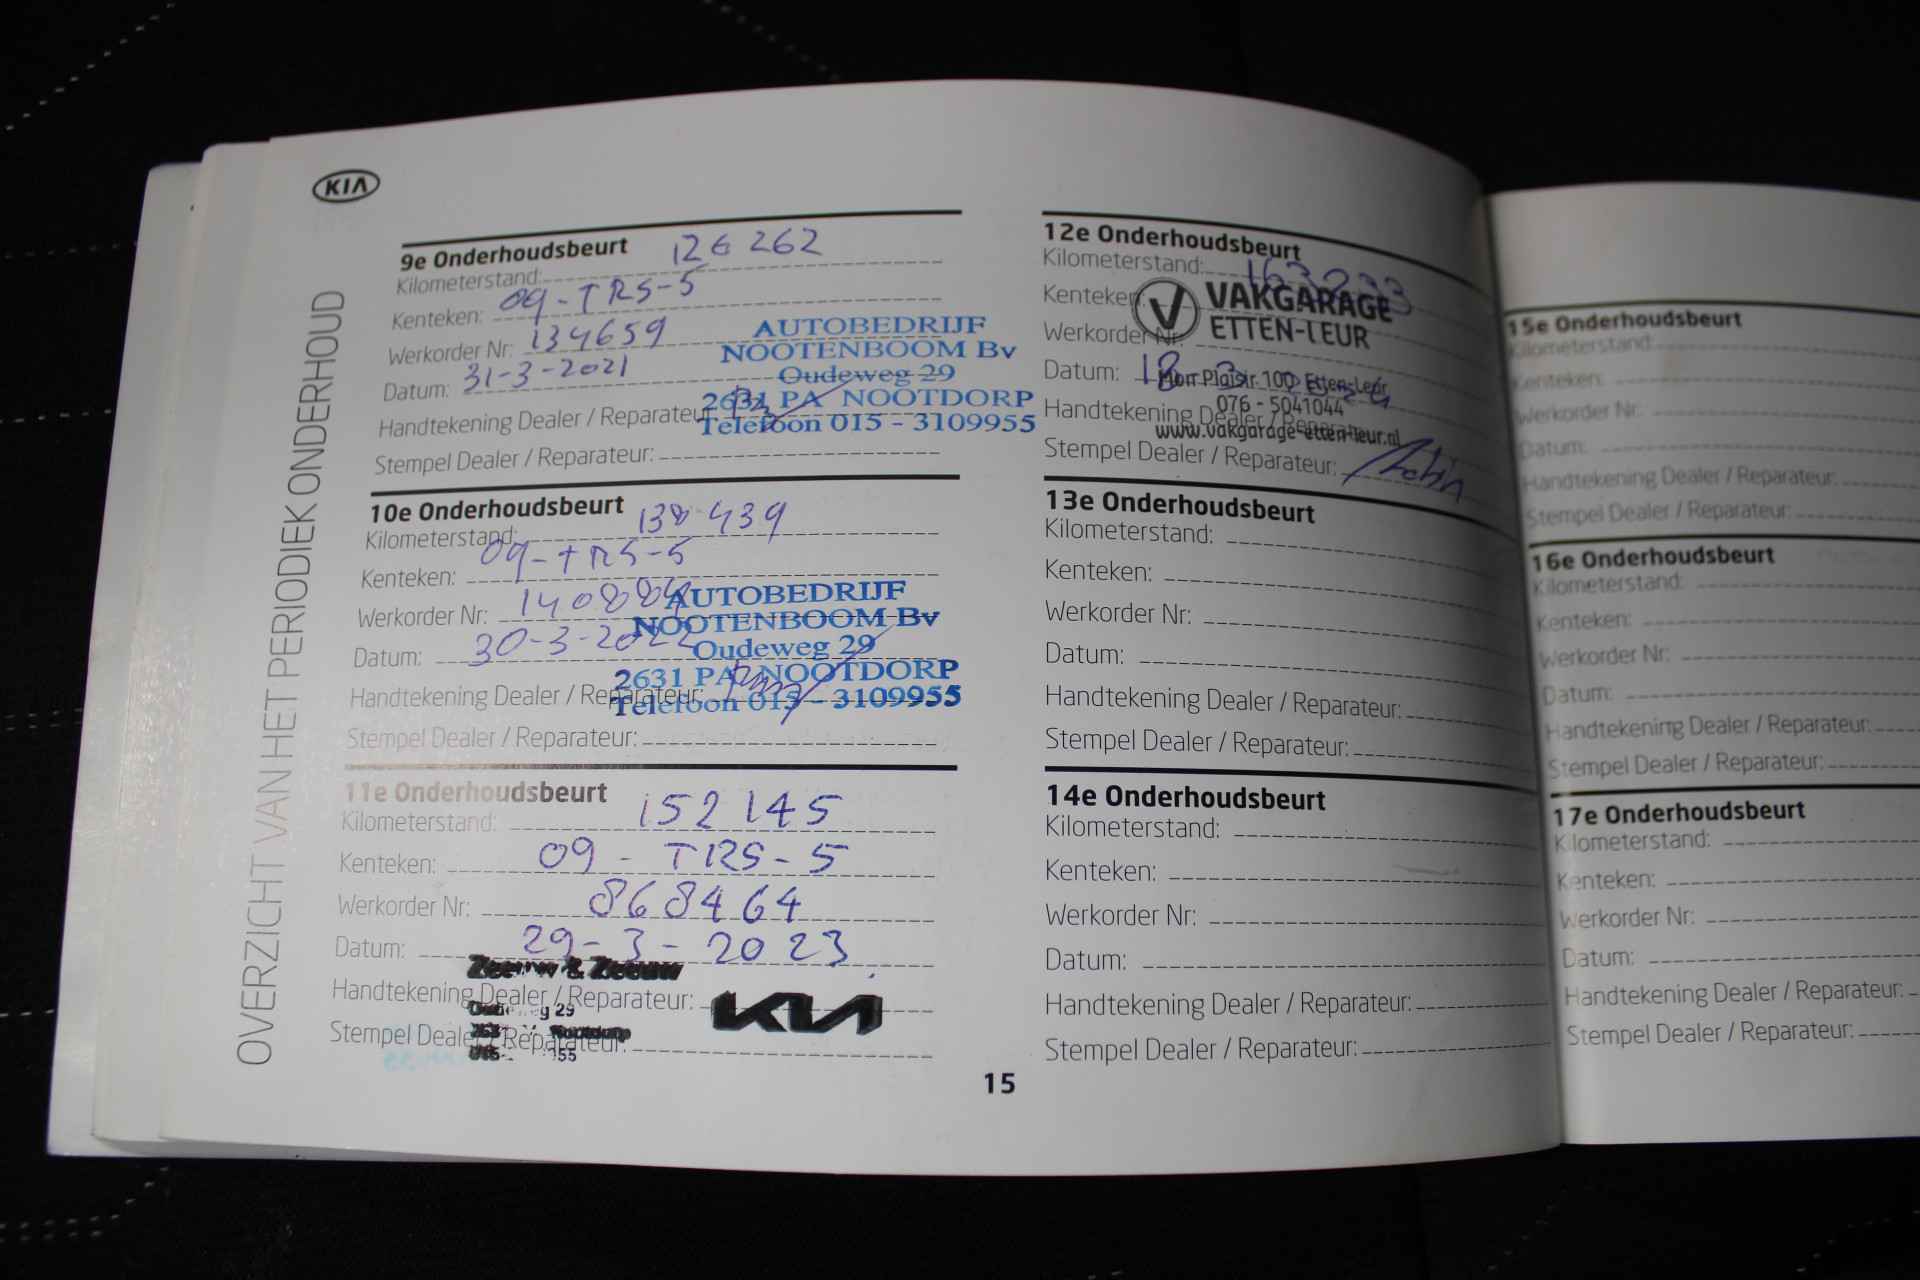 KIA
OVERZICHT VAN HET PERIODIEK ONDERHOUD
9e Onderhoudsbeurt
Kilometerstand: 126 262
Kenteken: 09-TRS-5
Werkorder Nr: 134659
Datum: 31-3-2021
Handtekening Dealer / Reparateur:
Stempel Dealer / Reparateur:
AUTOBEDRIJF
NOOTENBOOM Bv
Oudeweg 29
2631 PA NOOTDORP
Telefoon 015 - 3109955
10e Onderhoudsbeurt
Kilometerstand: 138 439
Kenteken: 09-TRS-5
Werkorder Nr: 140884
Datum: 30-3-2022
Handtekening Dealer / Reparateur:
Stempel Dealer / Reparateur:
AUTOBEDRIJF
NOOTENBOOM Bv
Oudeweg 29
2631 PA NOOTDORP
Telefoon 015 - 3109955
11e Onderhoudsbeurt
Kilometerstand: 152 145
Kenteken: 09-TRS-5
Werkorder Nr: 868464
Datum: 29-3-2023
Handtekening Dealer / Reparateur:
Stempel Dealer / Reparateur:
Zeeuw & Zeeuw
29
Nootdorp
KIA
12e Onderhoudsbeurt
Kilometerstand:
Kenteken:
Werkorder Nr:
Datum: 18
Handtekening Dealer / Reparateur:
Stempel Dealer / Reparateur:
VAKGARAGE
ETTEN-LEUR
Mon Plaisir 100 Etten-Leur
076 - 5041044
www.vakgarage-etten-leur.nl
13e Onderhoudsbeurt
Kilometerstand:
Kenteken:
Werkorder Nr:
Datum:
Handtekening Dealer / Reparateur:
Stempel Dealer / Reparateur:
14e Onderhoudsbeurt
Kilometerstand:
Kenteken:
Werkorder Nr:
Datum:
Handtekening Dealer / Reparateur:
Stempel Dealer / Reparateur:
15
15e Onderhoudsbeurt
Kilometerstand:
Kenteken:
Werkorder Nr:
Datum:
Handtekening Dealer / Reparateur:
Stempel Dealer / Reparateur:
16e Onderhoudsbeurt
Kilometerstand:
Kenteken:
Werkorder Nr:
Datum:
Handtekening Dealer / Reparateur:
Stempel Dealer / Reparateur:
17e Onderhoudsbeurt
Kilometerstand:
Kenteken:
Werkorder Nr:
Datum:
Handtekening Dealer / Reparateur:
Stempel Dealer / Reparateur: